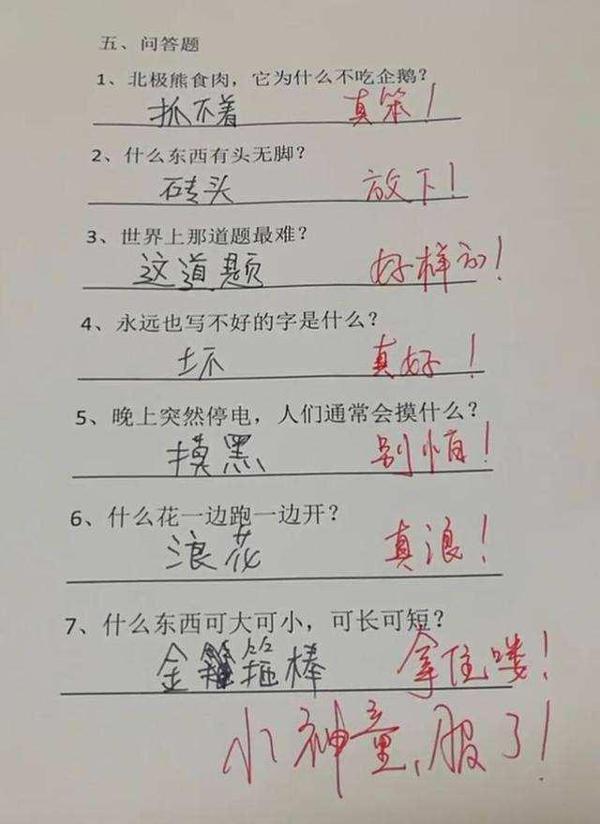 五、问答题
1、北极熊食肉，它为什么不吃企鹅？
抓不着 真笨！
2、什么东西有头无脚？
砖头 放下！
3、世界上那道题最难？
这道题 好样的！
4、永远也写不好的字是什么？
坏 真好！
5、晚上突然停电，人们通常会摸什么？
摸黑 别怕！
6、什么花一边跑一边开？
浪花 真浪！
7、什么东西可大可小，可长可短？
金箍棒 拿住喽！
小神童，服了！